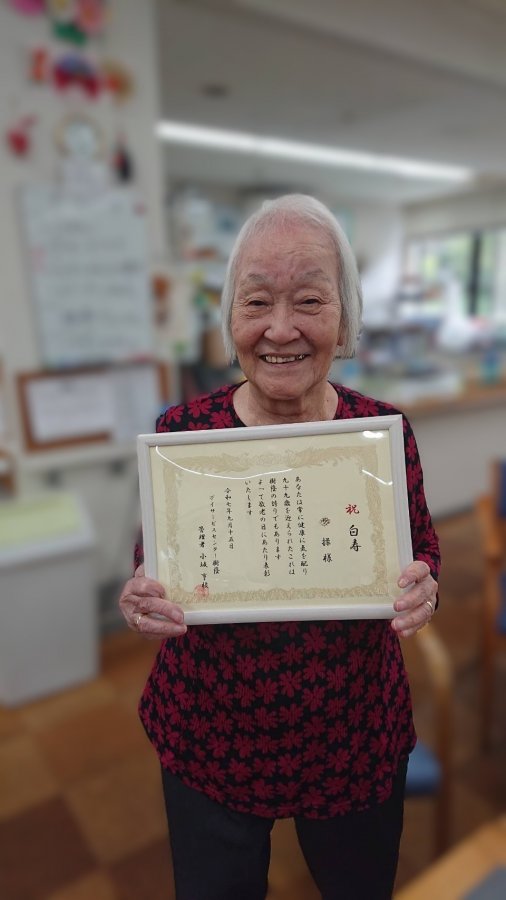 祝 白寿
操 様
あなたは常に健康に気を配り
九十九歳を迎えられたこれは
樹蔭の誇りでもあります
よって敬老の日にあたり表彰
いたします
令和七年九月十五日
デイサービスセンター樹蔭
管理者 小城